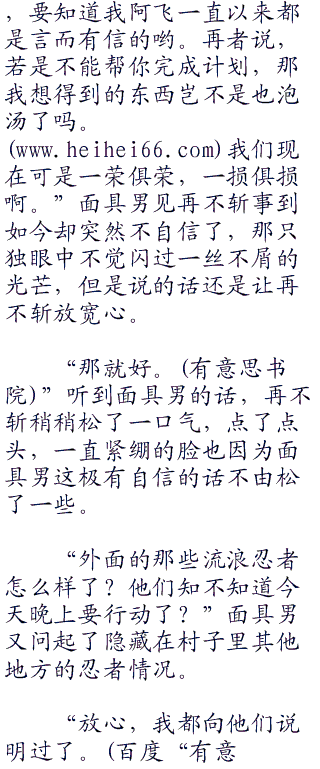 ，要知道我阿飞一直以来都
是言而有信的哟。再者说，
若是不能帮你完成计划，那
我想得到的东西岂不是也泡
汤了吗。
(www.heihei66.com)我们现
在可是一荣俱荣，一损俱损
啊。”面具男见再不斩事到
如今却突然不自信了，那只
独眼中不觉闪过一丝不屑的
光芒，但是说的话还是让再
不斩放宽心。
“那就好。(有意思书
院)”听到面具男的话，再不
斩稍稍松了一口气，点了点
头，一直紧绷的脸也因为面
具男这极有自信的话不由松
了一些。
“外面的那些流浪忍者
怎么样了？他们知不知道今
天晚上要行动了？”面具男
又问起了隐藏在村子里其他
地方的忍者情况。
“放心，我都向他们说
明过了。(百度“有意